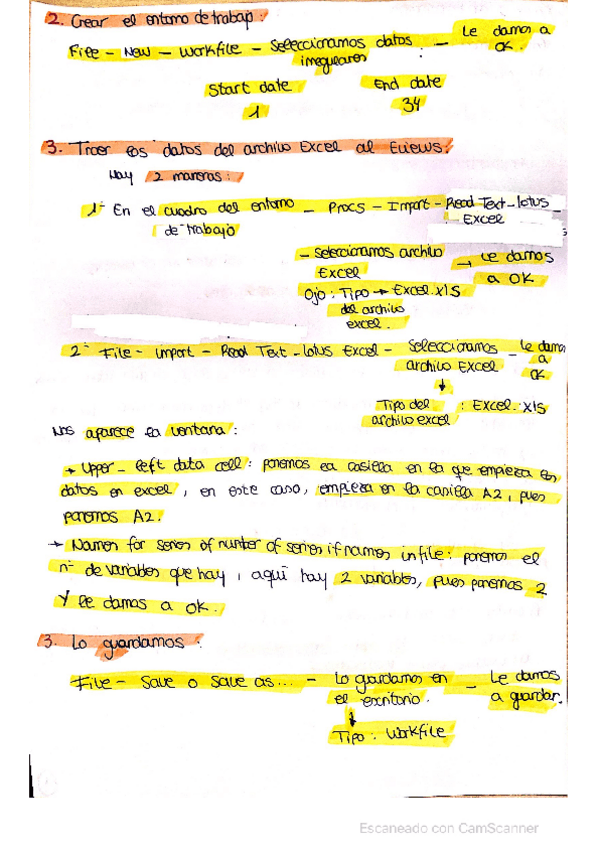 2. Crear el entorno de trabajo:
File – New – Workfile – Seleccionamos datos irregulares – Le damos a OK.
Start date End date
1 34
3. Traer los datos del archivo Excel al Eviews:
Hay 2 maneras:
1- En el cuadro del entorno de trabajo – Procs – Import – Read Text-lotus Excel
– Seleccionamos archivo Excel → Le damos a OK
Ojo: Tipo → Excel.xls
del archivo
excel.
2- File – import – Read Text-lotus Excel – Seleccionamos archivo EXCEL – le damos a OK
↓
Tipo del archivo excel : EXCEL.XLS
Nos aparece la ventana:
→ Upper-left data cell: ponemos la casilla en la que empieza los
datos en excel, en este caso, empieza en la casilla A2, pues
ponemos A2.
→ Names for series of number of series if names in file: ponemos el
nº de variables que hay, aquí hay 2 variables, pues ponemos 2
Y le damos a OK.
3. Lo guardamos:
File – Save o Save as... – Lo guardamos en el escritorio. – Le damos a guardar.
↓
Tipo: Workfile
Escaneado con CamScanner